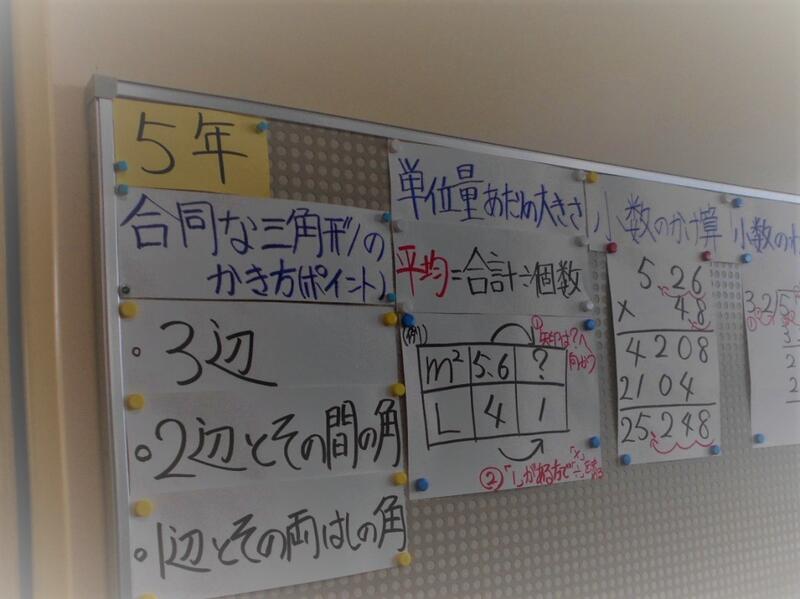 5年
合同な三角形の
かき方(ポイント)
・3辺
・2辺とその間の角
・1辺とその両はしの角
単位量あたりの大きさ
平均=合計÷個数
(例1)
①矢印は?へ
向かう
m² 5.6 ?
L 4 1
②「1」がある方で
小数のかけ算
5.26
× 4.8
4208
2104
25.248
小数のわ
3.2